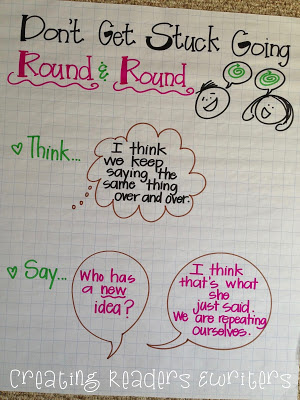 Don't Get Stuck Going
Round & Round
Think...
I think
we keep
saying the
same thing
over and over.
Say...
Who has
a new
idea?
I think
that's what
she
just said.
We are repeating
ourselves.
Creating Readers & Writers